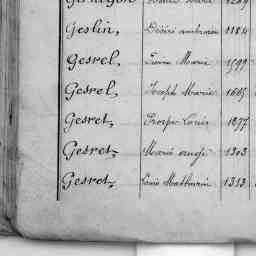 Geslin, Désiré ambroise 1184
Gesrel, Marie 1599
Gesrel, Joseph Marie 1665
Gesret, Prosper Louis 1277
Gesret, Marie ange 1303
Gesret, Louis Mathurin 1313